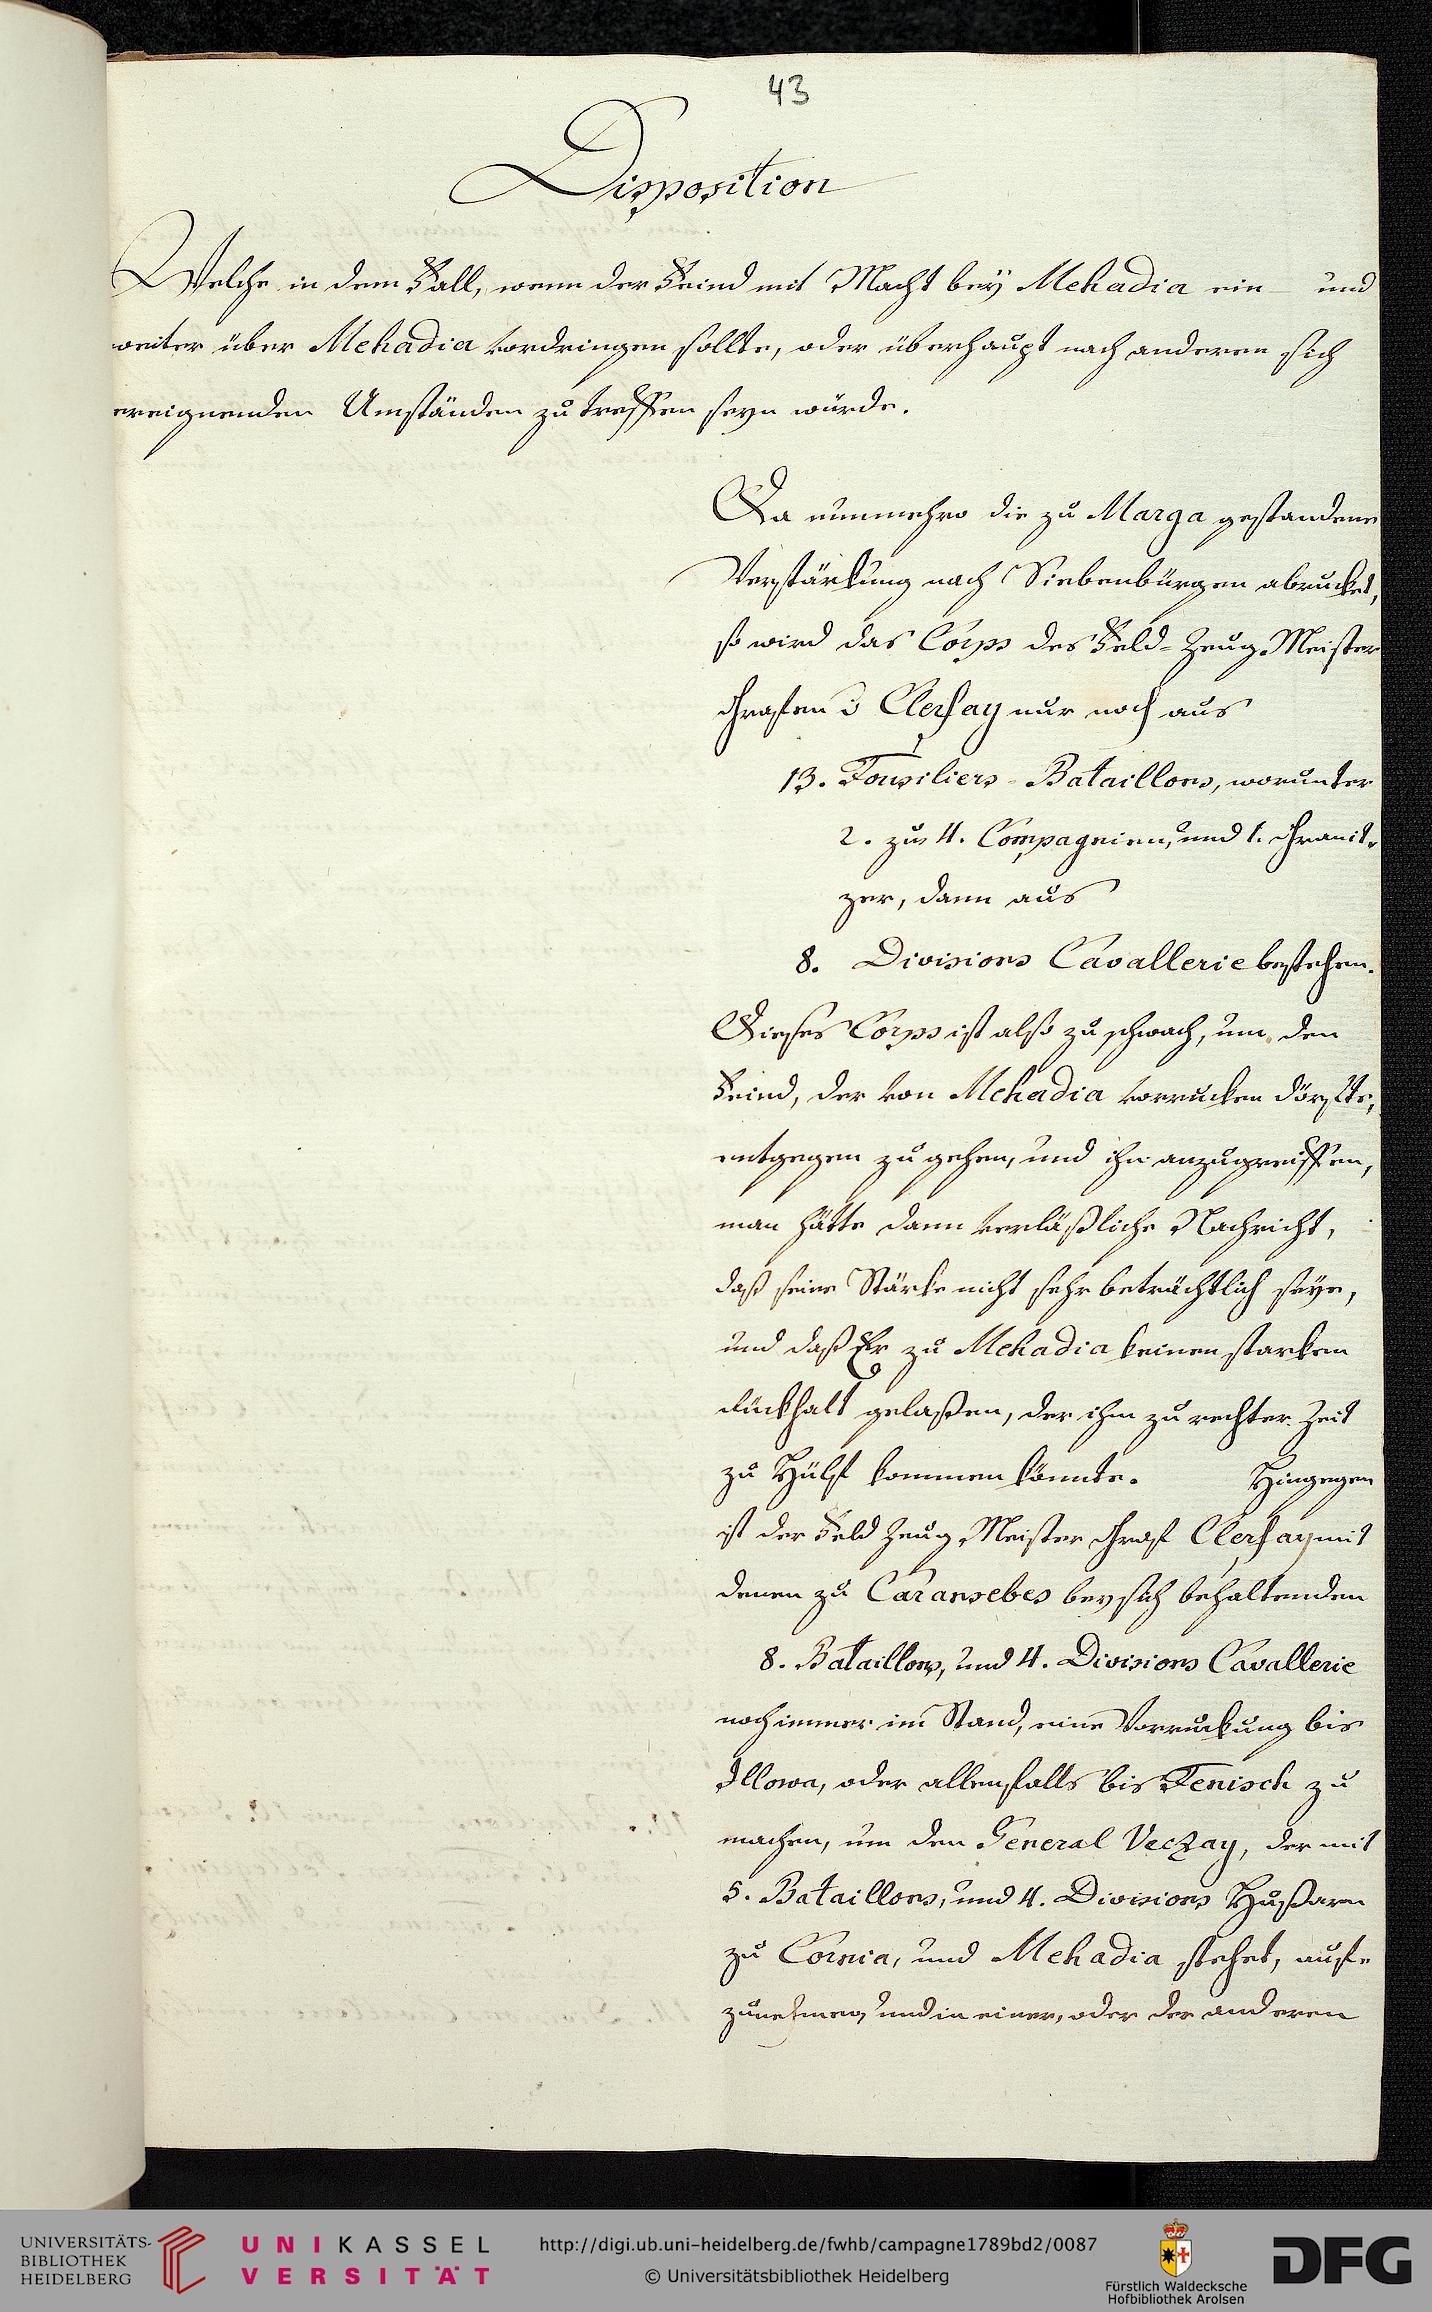 43
Disposition
Welche in dem Fall, wenn der Feind mit Macht bey Mehadia ein- und
weiter über Mehadia vordringen sollte, oder überhaupt nach anderen sich
ereignenden Umständen zu treffen seyn würde.
Da nunmehro die zu Marga gestandene
Verstärkung nach Siebenbürgen abrucket,
so wird das Corps des Feld-Zeug-Meister
Grafen v Clerfay nur noch aus
13. Fousiliers-Bataillons, worunter
2. zu 4. Compagnien, und 1. Granit-
zer, dann aus
8. Divisions Cavallerie bestehen.
Dieses Corps ist also zu schwach, um den
Feind, der von Mehadia vorrucken dörfte,
entgegen zu gehen, und ihn anzugreiffen,
man hätte dann verläßliche Nachricht,
daß seine Stärke nicht sehr beträchtlich seye,
und daß Er zu Mehadia keinen starken
Rückhalt gelaßen, der ihm zu rechter Zeit
zu Hülf kommen könnte. Hingegen
ist der Feld Zeug Meister Graf Clerfay mit
denen zu Caransebes bey sich behaltenden
8. Bataillons, und 4. Divisions Cavallerie
noch immer im Stand, eine Vorruckung bis
Illowa, oder allenfalls bis Fenisch zu
machen, um den General Veczay, der mit
5. Bataillons, und 4. Divisions Hußaren
zu Cornia, und Mehadia stehet, auf-
zunehmen, und in einer, oder der anderen
UNIVERSITÄTS-
BIBLIOTHEK
HEIDELBERG
UNIKASSEL
VERSITÄT
http://digi.ub.uni-heidelberg.de/fwhb/campagne1789bd2/0087
© Universitätsbibliothek Heidelberg
Fürstlich Waldecksche
Hofbibliothek Arolsen
DFG